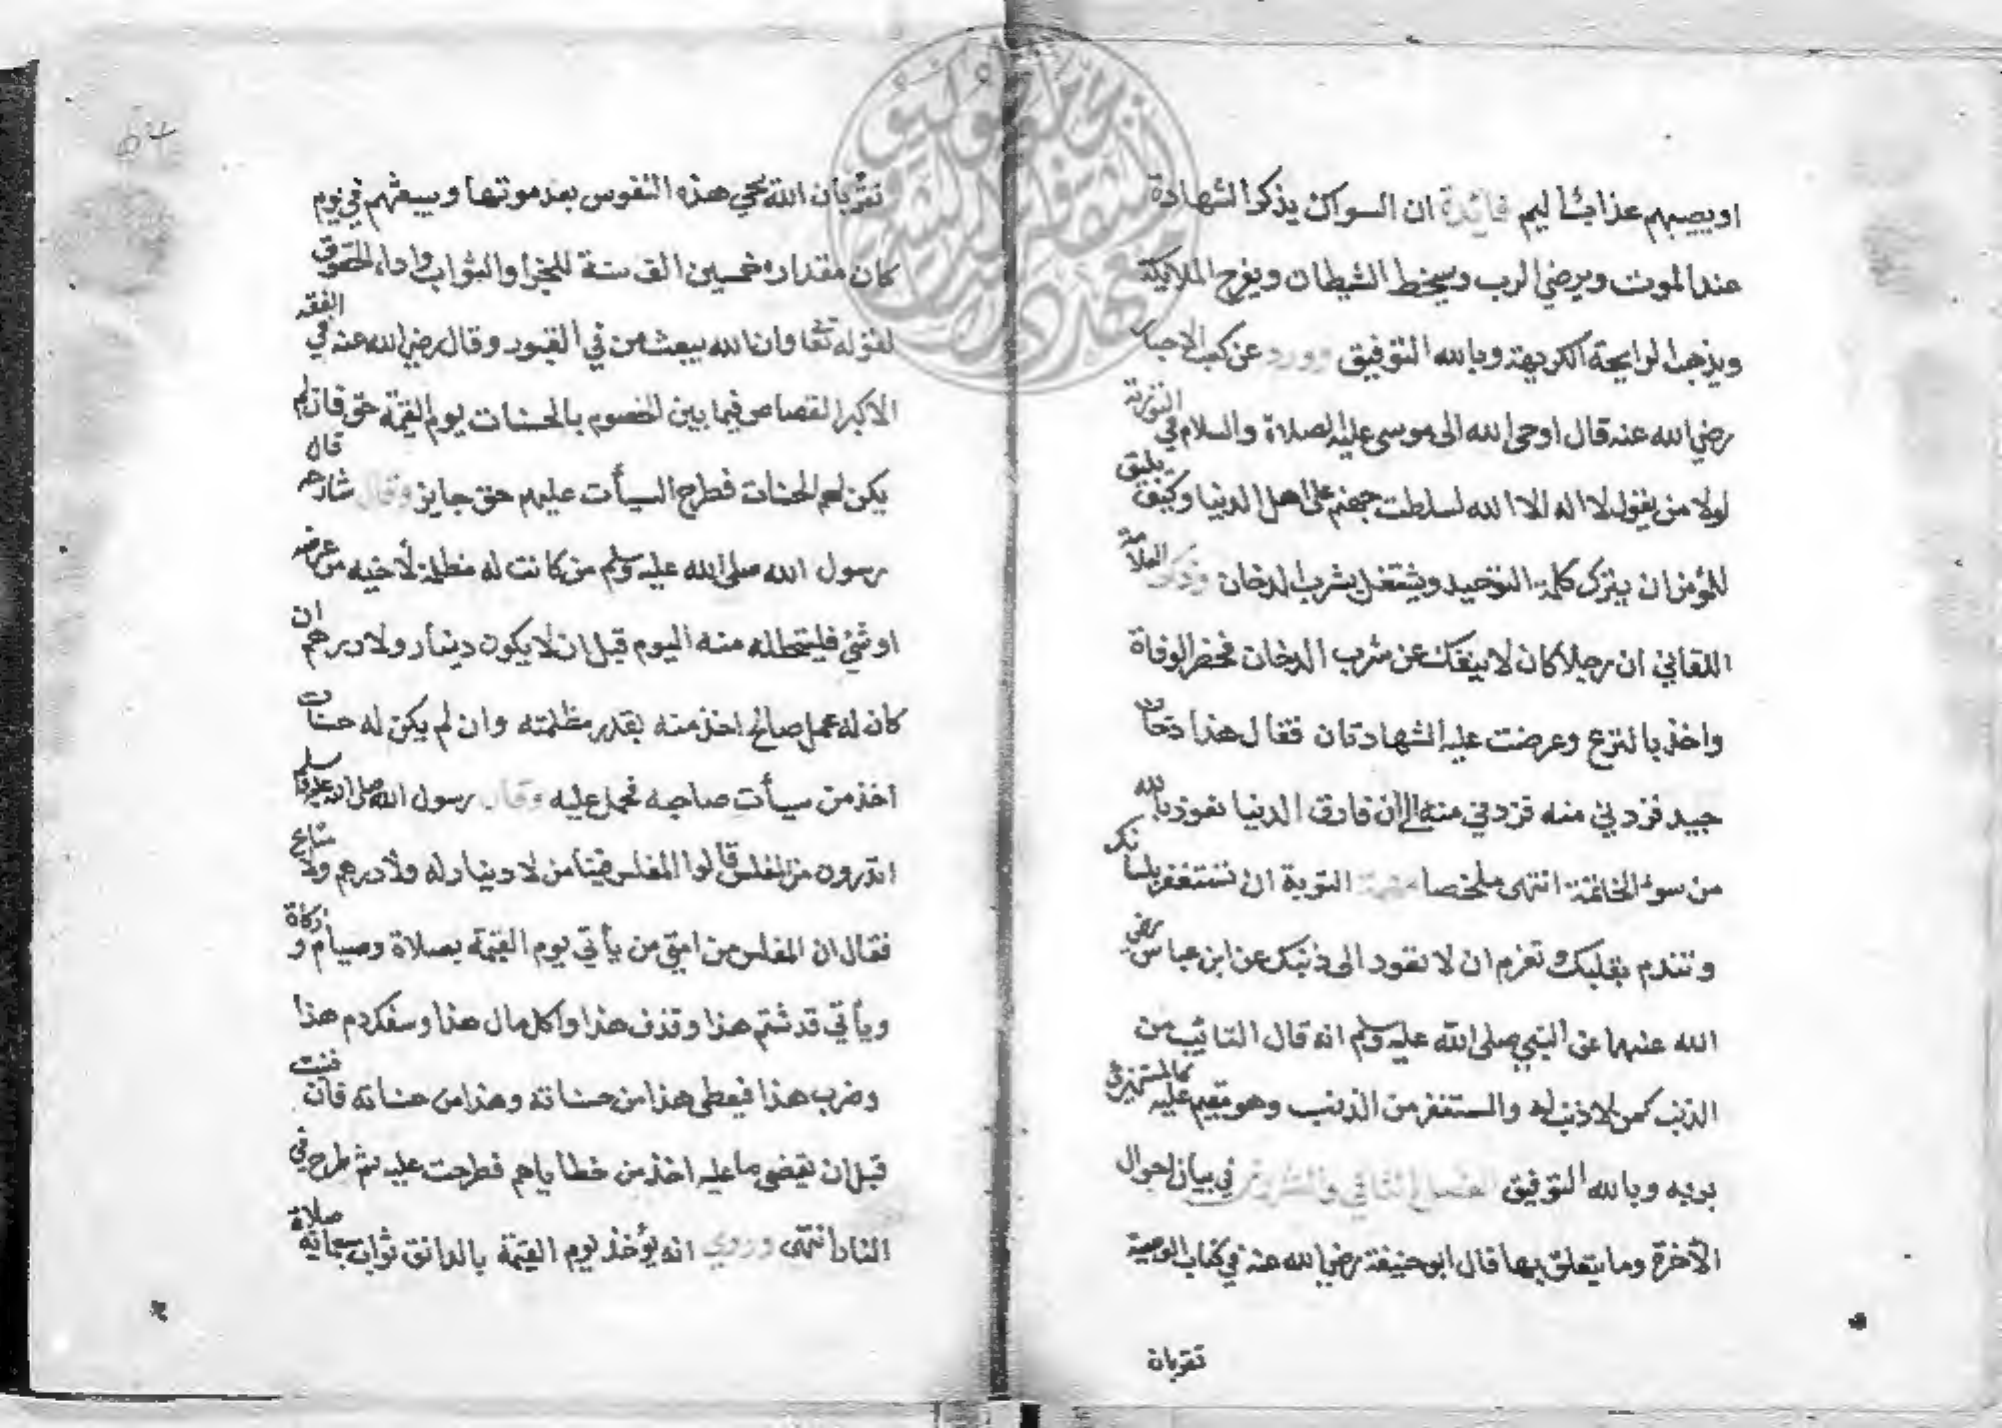 او يصيبهم عذاب اليم فائدة ان السواك يذكر الشهادة
عند الموت ويرضي الرب ويسخط الشيطان ويفرح الملائكة
ويذهب الرايحة الكريهة وبالله التوفيق وورد عن كعب الاحبار
رضي الله عنه قال اوحى الله الى موسى عليه الصلاة والسلام في التورية
لولا من يقول لا اله الا الله لسلطت جهنم على اهل الدنيا وكيف يليق
للمؤمن ان يترك كلمة التوحيد ويشتغل بشرب الدخان وذكر العلامة
اللقاني ان رجلا كان لا ينفك عن شرب الدخان فحضر الوفاة
واخذ بالنزع وعرضت عليه الشهادتان فقال هذا دخان
جيد فزدني منه فزدني منه الى ان فارق الدنيا نعوذ بالله
من سوء الخاتمة انتهى ملخصا التوبة ان تستغفر بلسانك
وتندم بقلبك وتعزم ان لا تعود الى ذنبك عن ابن عباس رضي
الله عنهما عن النبي صلى الله عليه وسلم انه قال التائب من
الذنب كمن لا ذنب له والمستغفر من الذنب وهو مقيم عليه كالمستهزئ
بربه وبالله التوفيق الفصل الثاني والعشرون في بيان احوال
الآخرة وما يتعلق بها قال ابو حنيفة رضي الله عنه في كتاب الوصية
تقربان
54
نقر بان الله يحي هذه النفوس بعد موتها ويبعثهم في يوم
كان مقداره خمسين الف سنة للجزا والثواب واداء الحقوق
لقوله تعا وان الله يبعث من في القبور وقال رضي الله عنه في الفقه
الاكبر القصاص فيما بين الخصوم بالحسنات يوم القيمة حق فان لم
يكن لهم الحسنات فطرح السيأت عليهم حق جايز وقال شارحه قال
رسول الله صلى الله عليه وسلم من كانت له مظلمة لأخيه من عرضه
او شئ فليتحلله منه اليوم قبل ان لا يكون دينار ولا درهم ان
كان له عمل صالح اخذ منه بقدر مظلمته وان لم يكن له حسنات
اخذ من سيأت صاحبه فحمل عليه وقال رسول الله صلى الله عليه وسلم
اتدرون من المفلس قالوا المفلس فينا من لا دينار له ولا درهم ولا متاع
فقال ان المفلس من امتي من يأتي يوم القيمة بصلاة وصيام وزكاة
ويأتي قد شتم هذا وقذف هذا واكل مال هذا وسفك دم هذا
وضرب هذا فيعطى هذا من حسناته وهذا من حسناته فان فنيت
قبل ان يقضى ما عليه اخذ من خطاياهم فطرحت عليه ثم طرح في
النار انتهى وروي انه يؤخذ يوم القيمة بالدانق ثواب سبعماية صلاة